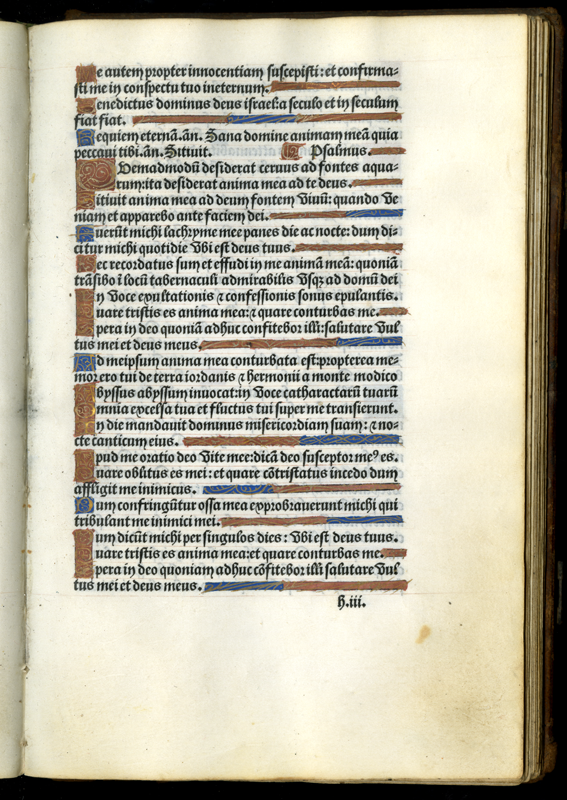 Me autem propter innocentiam suscepisti: et confirma-
sti me in conspectu tuo ineternum.
Benedictus dominus deus israel:a seculo et in seculum
fiat fiat.
Requiem eternã. añ. Sana domine animam meã quia
peccaui tibi. añ. Sitiuit. Psalmus.
QVemadmodũ desiderat ceruus ad fontes aqua-
rum:ita desiderat anima mea ad te deus.
Sitiuit anima mea ad deum fontem viuũ: quando ve
niam et apparebo ante faciem dei.
Fuerũt michi lachryme mee panes die ac nocte: dum di-
citur michi quotidie vbi est deus tuus.
Hec recordatus sum et effudi in me animã meã: quoniã
trãsibo ĩ locũ tabernaculi admirabilis vsq̃ ad domũ dei
In voce exultationis ⁊ confessionis sonus epulantis.
Quare tristis es anima mea: ⁊ quare conturbas me.
Spera in deo quoniã adhuc confitebor illi: salutare vul
tus mei et deus meus.
Ad meipsum anima mea conturbata est:propterea me-
morero tui de terra iordanis ⁊ hermonii a monte modico
Abyssus abyssum inuocat: in voce catharactarũ tuarũ
Omnia excelsa tua et fluctus tui super me transierunt.
In die mandauit dominus misericordiam suam: ⁊ no-
cte canticum eius.
Apud me oratio deo vite mee:dicã deo susceptor meꝰ es.
Quare oblitus es mei: et quare cõtristatus incedo dum
affligit me inimicus.
Dum confringũtur ossa mea exprobrauerunt michi qui
tribulant me inimici mei.
Dum dicũt michi per singulos dies: vbi est deus tuus.
Quare tristis es anima mea:et quare conturbas me.
Spera in deo quoniam adhuc cõfitebor illi salutare vul
tus mei et deus meus.
h.iii.